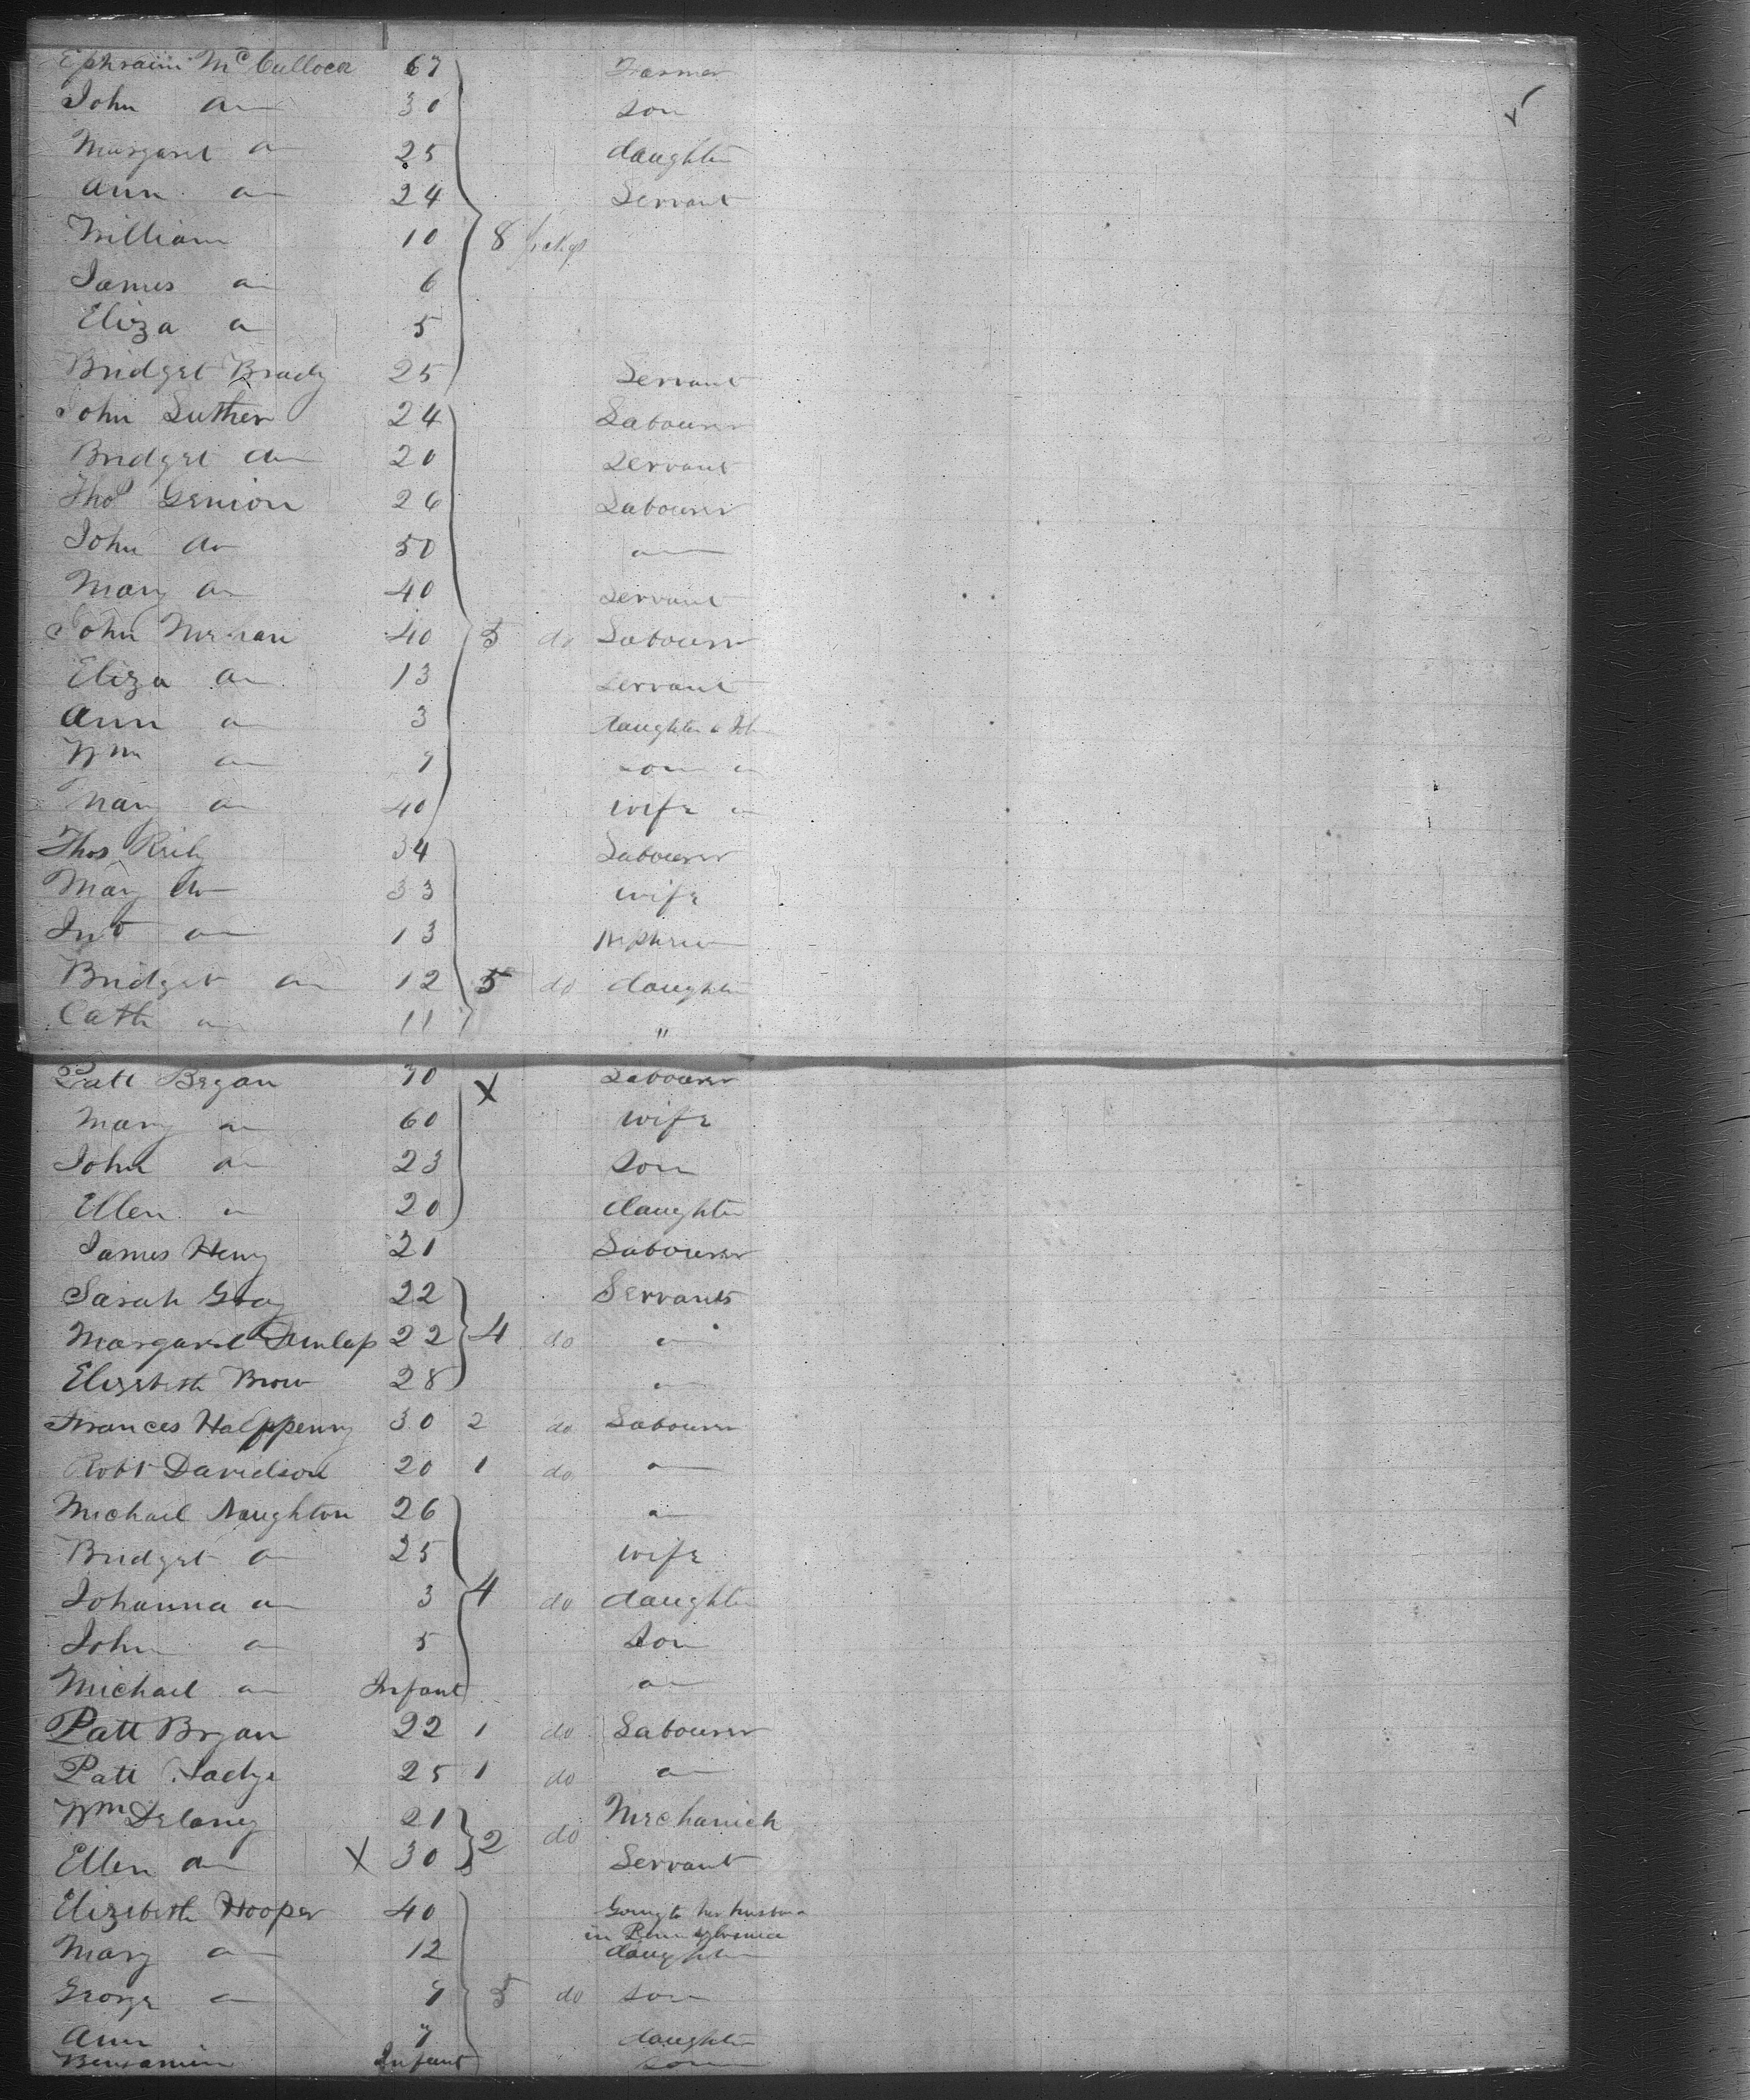 Ephraim McCullock 67 Farmer
John do 30 son
Margaret do 25 daughter
Ann do 24 Servant
William 10 8 pckgs
James do 6
Eliza do 5
Bridget Brady 25 Servant
John Luther 24 Labourer
Bridget do 20 Servant
Thos 26 Labourer
John do 50 do
Mary do 40 servant
John 40 5 do Labourer
Eliza do 13 servant
Ann do 3 daughter
Wm do 9 son do
Mary do 40 wife do
Thos Reily 34 Labourer
Mary do 33 wife
Jno do 13 Nephew
Bridget do 12 5 do daughter
Cath do 11 "
Patt Bryan 70 X Labourer
Mary do 60 wife
John do 23 son
Ellen do 20 daughter
James Henry 21 Labourer
Sarah Gray 22 Servants
Margaret Dunlap 22 4 do do
Elizabeth Brow 28 do
Frances Halppenny 30 2 do Labourer
Robt Davidson 20 1 do do
Michael Naughton 26 do
Bridget do 25 wife
Johanna do 3 4 do daughter
John do 5 son
Michael do Infant do
Patt Bryan 22 1 do Labourer
Patt 25 1 do do
Wm Delany 21 2 do Mechanick
Ellen do X 30 Servant
Elizabeth Hooper 40 Going to her husband
in Pennsylvania
Mary do 12 daughter
George do 9 5 do son
Ann 7 daughter
Benjamin Infant son